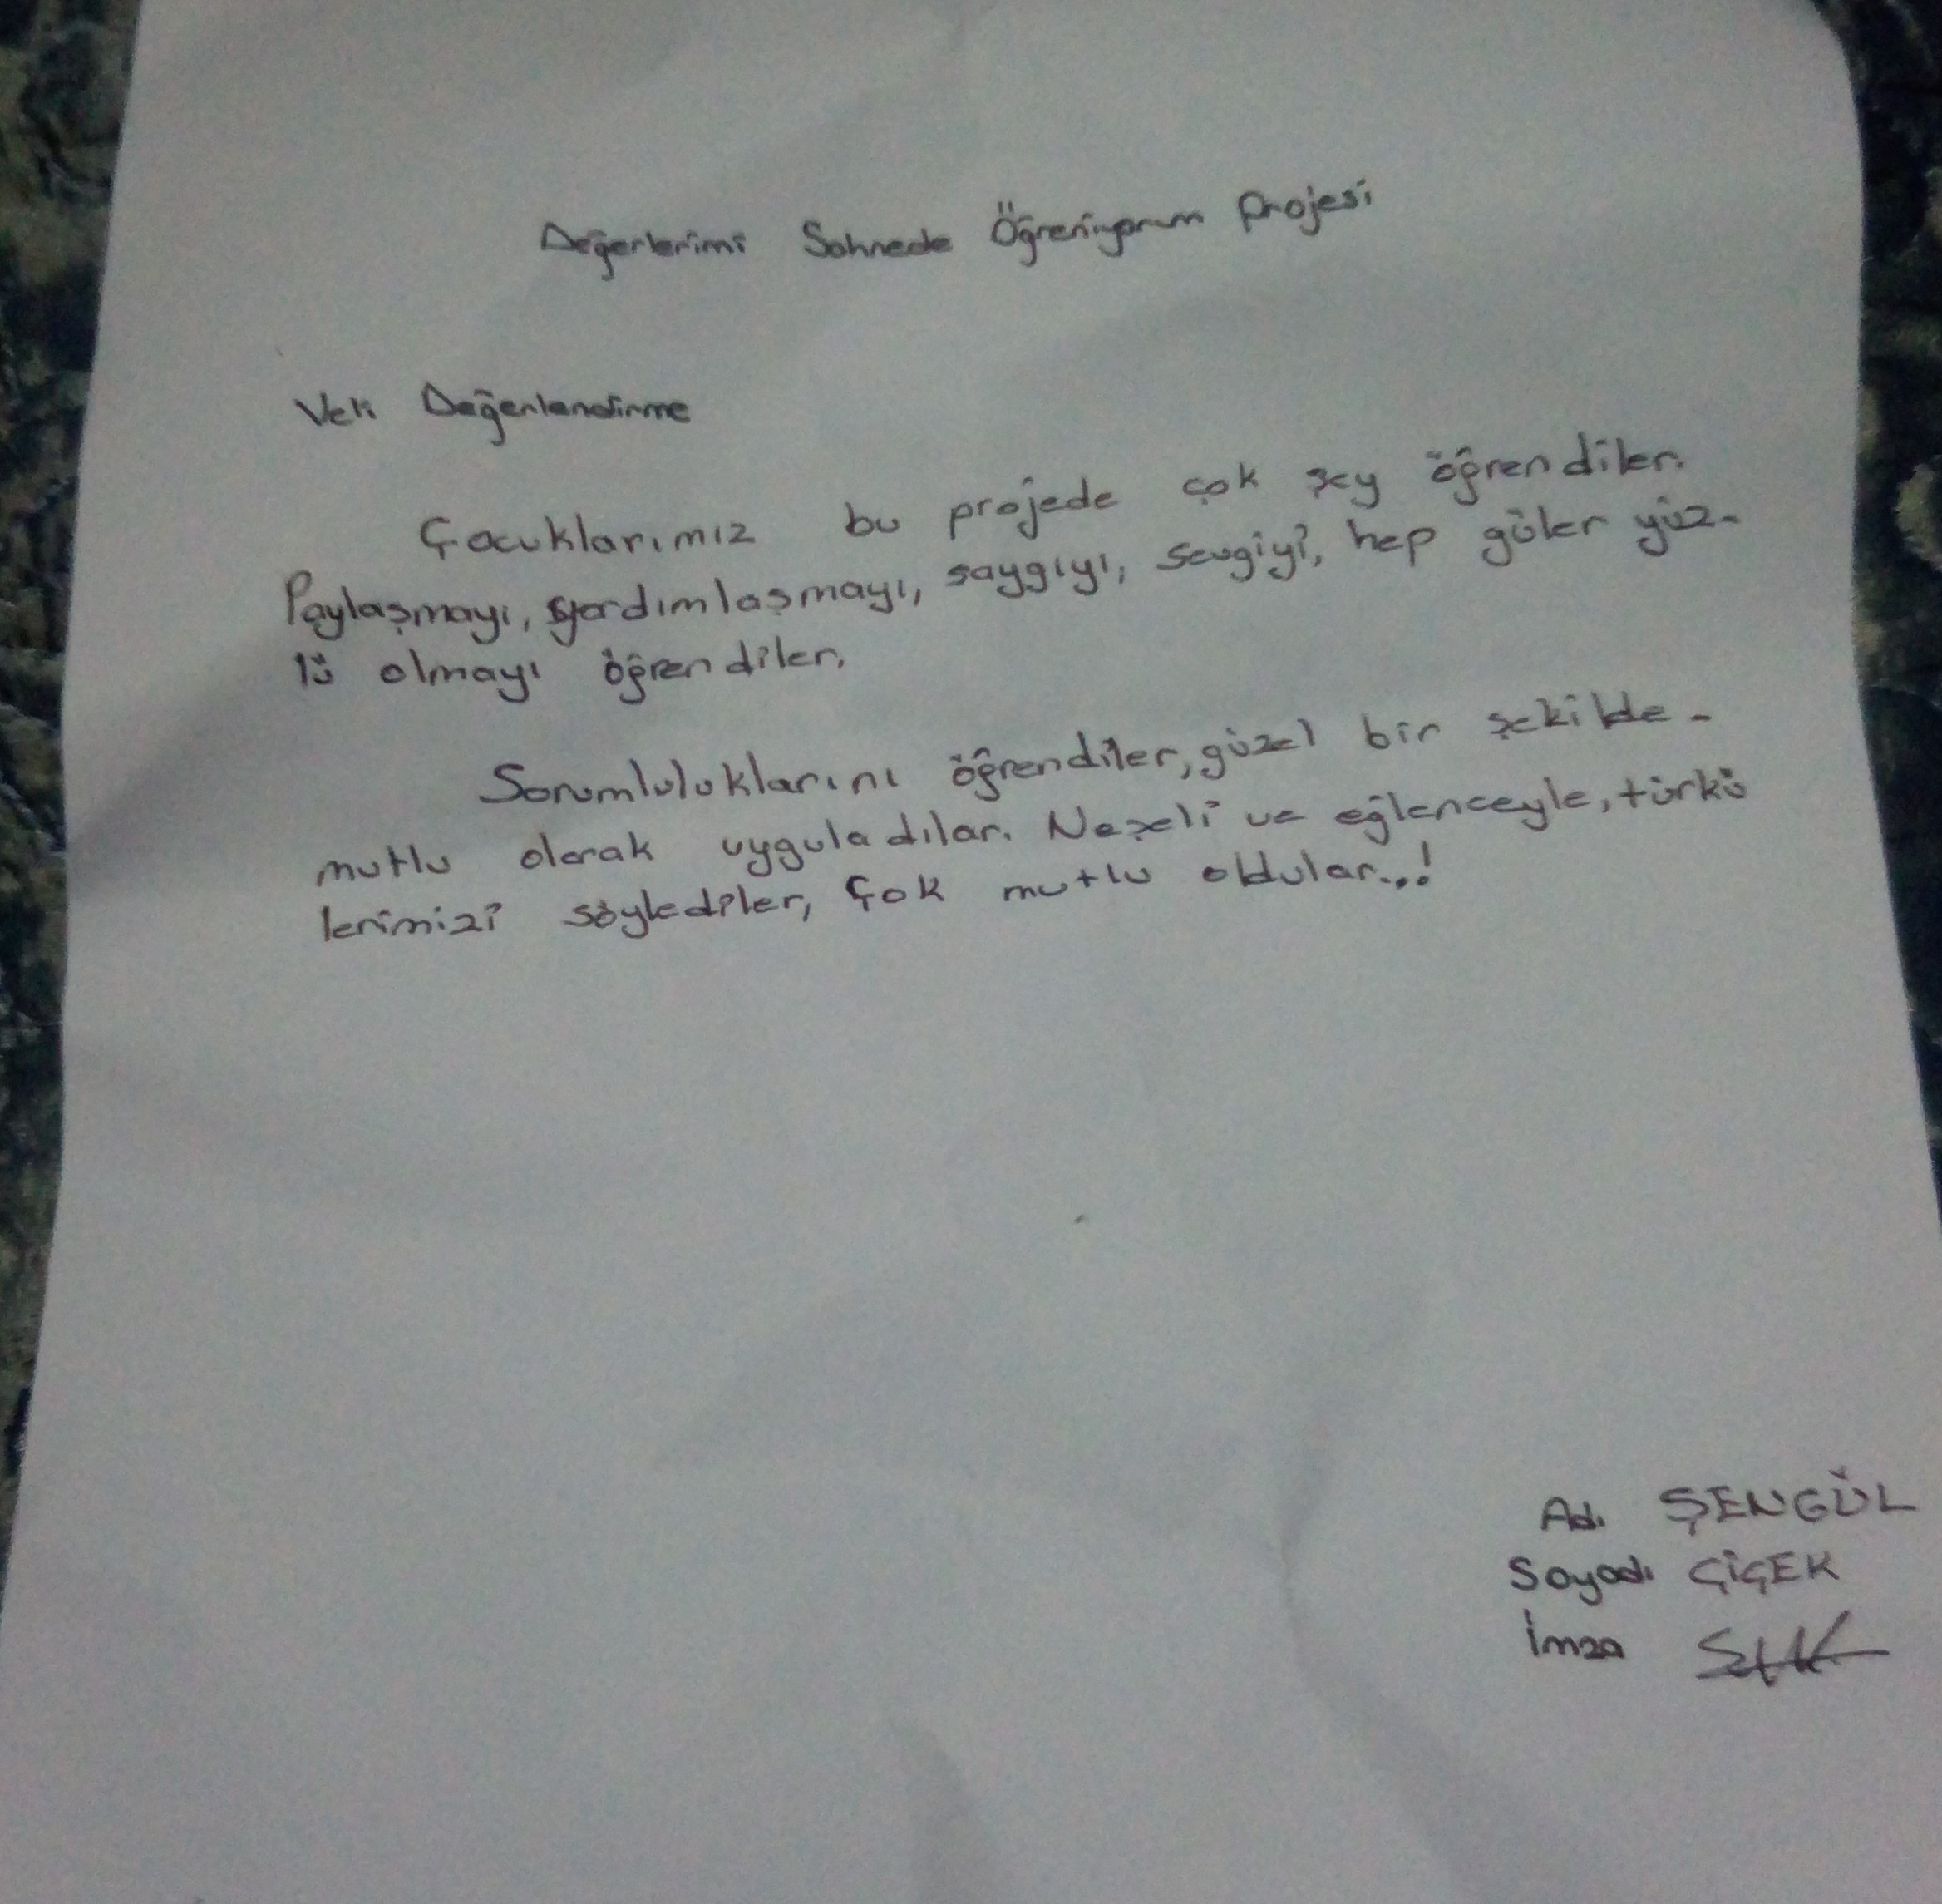 Değerlerimi Sahnede Öğreniyorum Projesi
Veli Değerlendirme
Çocuklarımız bu projede çok şey öğrendiler.
Paylaşmayı, yardımlaşmayı, saygıyı, sevgiyi, hep güler yüz-
lü olmayı öğrendiler.
Sorumluluklarını öğrendiler, güzel bir şekilde -
mutlu olarak uyguladılar. Neşeli ve eğlenceyle, türkü
lerimizi söylediler, Çok mutlu oldular...!
Adı ŞENGÜL
Soyadı ÇİÇEK
İmza